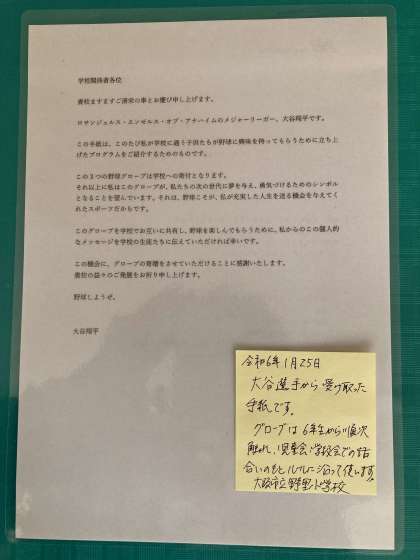 学校関係者各位
貴校ますますご清栄の事とお慶び申し上げます。
ロサンジェルス・エンゼルス・オブ・アナハイムのメジャーリーガー、大谷翔平です。
この手紙は、このたび私が学校に通う子供たちが野球に興味を持ってもらうために立ち上
げたプログラムをご紹介するためのものです。
この3つの野球グローブは学校への寄付となります。
それ以上に私はこのグローブが、私たちの次の世代に夢を与え、勇気づけるためのシンボル
となることを望んでいます。それは、野球こそが、私が充実した人生を送る機会を与えてく
れたスポーツだからです。
このグローブを学校でお互いに共有し、野球を楽しんでもらうために、私からのこの個人的
なメッセージを学校の生徒たちに伝えていただければ幸いです。
この機会に、グローブの寄贈をさせていただけることに感謝いたします。
貴校の益々のご発展をお祈り申し上げます。
野球しようぜ。
大谷翔平
令和6年1月25日
大谷選手から受け取った
手紙です。
グローブは6年生から順次
触れ、児童会・学級会での話
合いのもとルールに沿って使います。
大阪市立野里小学校